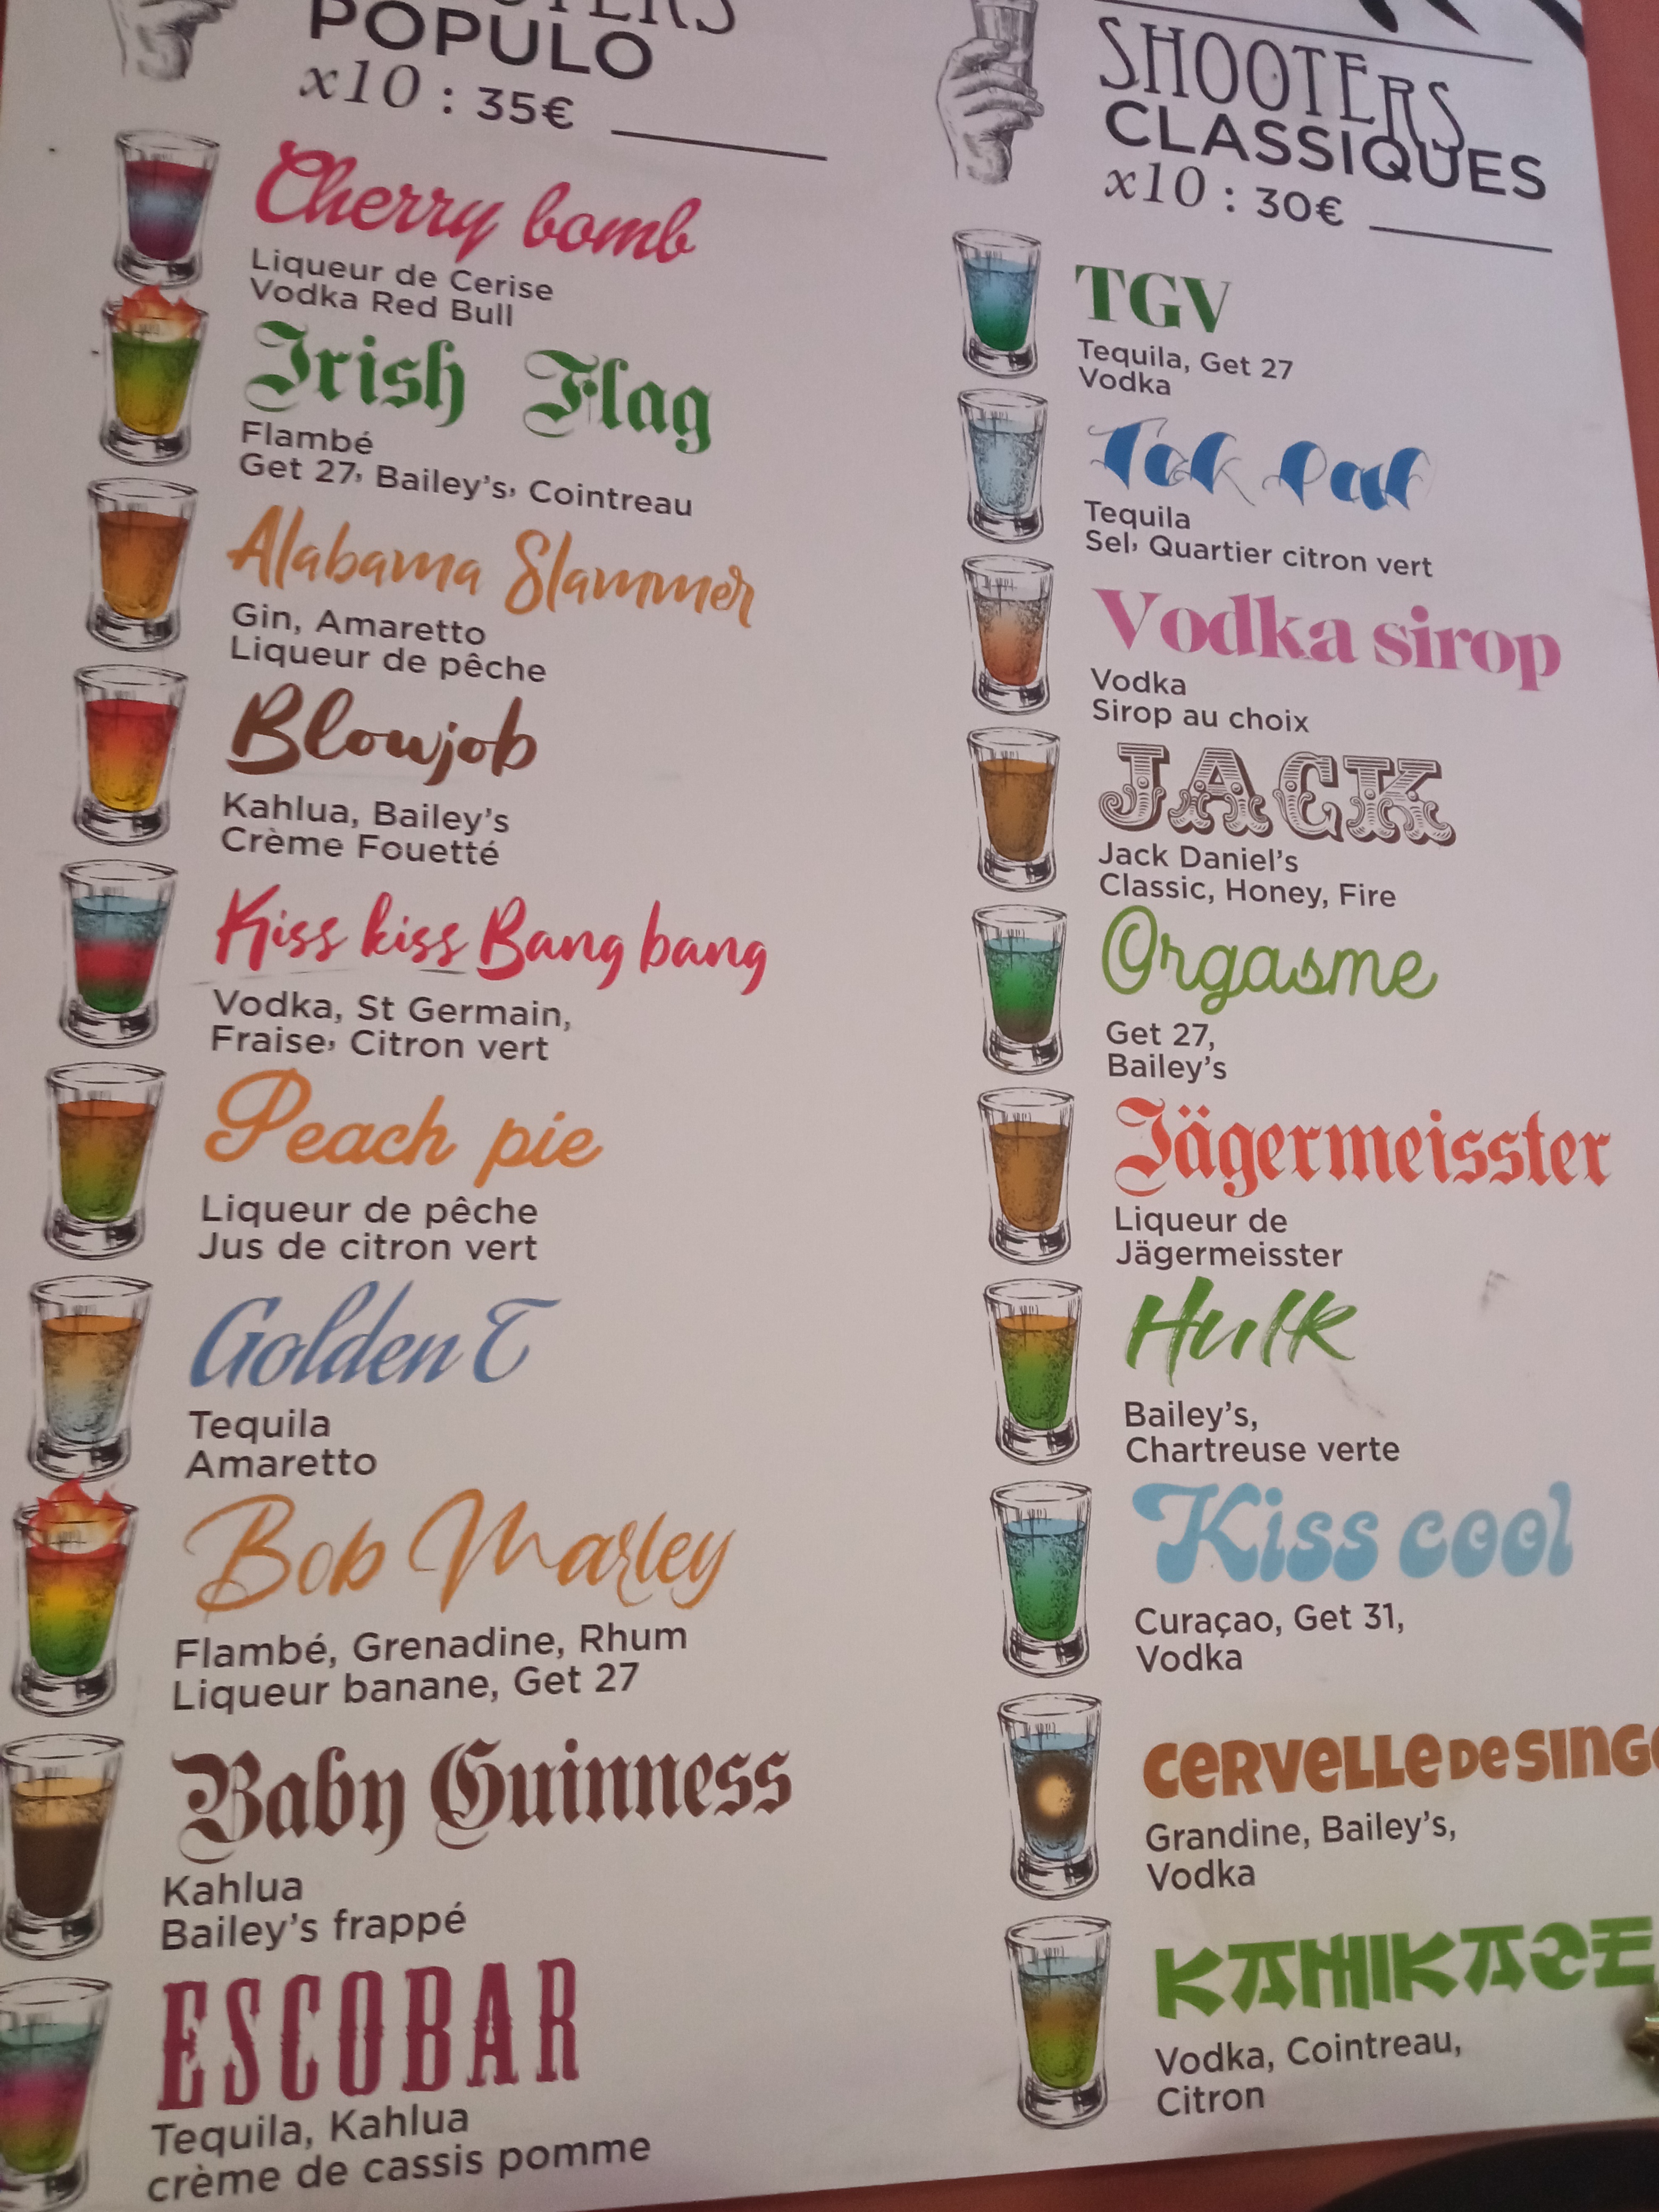 POPULO
x10 : 35€
Cherry bomb
Liqueur de Cerise
Vodka Red Bull
Irish Flag
Flambé
Get 27, Bailey's, Cointreau
Alabama Slammer
Gin, Amaretto
Liqueur de pêche
Blowjob
Kahlua, Bailey's
Crème Fouetté
Kiss kiss Bang bang
Vodka, St Germain,
Fraise, Citron vert
Peach pie
Liqueur de pêche
Jus de citron vert
Golden T
Tequila
Amaretto
Bob Marley
Flambé, Grenadine, Rhum
Liqueur banane, Get 27
Baby Guinness
Kahlua
Bailey's frappé
ESCOBAR
Tequila, Kahlua
crème de cassis pomme
SHOOTERS
CLASSIQUES
x10 : 30€
TGV
Tequila, Get 27
Vodka
Tek Paf
Tequila
Sel, Quartier citron vert
Vodka sirop
Vodka
Sirop au choix
JACK
Jack Daniel's
Classic, Honey, Fire
Orgasme
Get 27,
Bailey's
Jägermeisster
Liqueur de
Jägermeisster
Hulk
Bailey's,
Chartreuse verte
Kiss cool
Curaçao, Get 31,
Vodka
CERVELLE DE SING
Grandine, Bailey's,
Vodka
KAMIKAZE
Vodka, Cointreau,
Citron